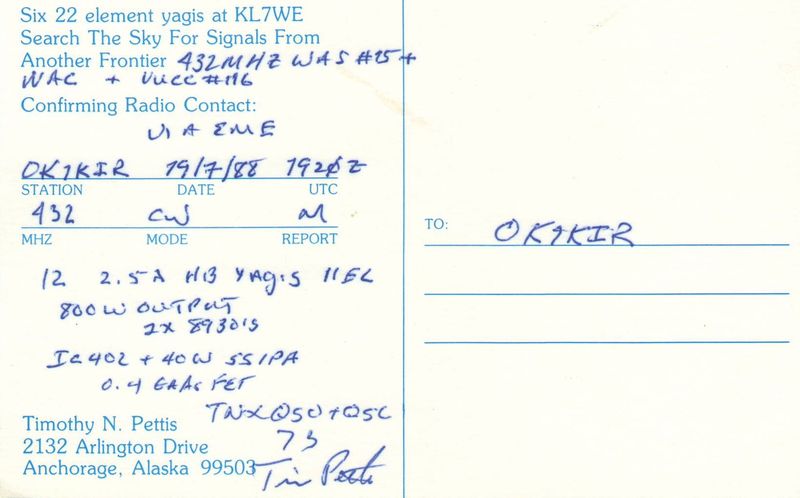 Six 22 element yagis at KL7WE
Search The Sky For Signals From
Another Frontier 432MHZ WAS #25 +
WAC + VUCC #116
Confirming Radio Contact:
VIA EME
OK1KIR 19/7/88 1920Z
STATION DATE UTC
432 CW M
MHZ MODE REPORT
12 2.5λ HB YAGIS 11EL
800W OUTPUT
2X 8930'S
IC402 + 40W SS/PA
0.4 GAAS FET
TNX QSO + QSL
73
Timothy N. Pettis
2132 Arlington Drive
Anchorage, Alaska 99503
Tim Pettis
TO: OK1KIR